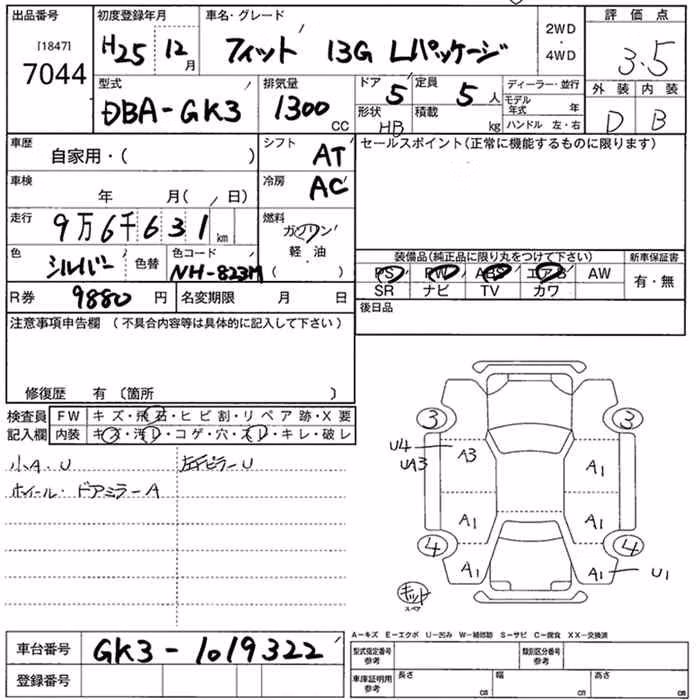 出品番号 初度登録年月 車名・グレード 2WD・4WD 評価点
[1847]
7044 H25 12月 フィット 13G Lパッケージ 3.5
型式 排気量 ドア 定員 ディーラー・並行 外装 内装
DBA-GK3 1300CC 5 5人 モデル年式 年 D B
形状 積載 ハンドル 左・右
HB kg
車歴 自家用・( ) シフト AT セールスポイント(正常に機能するものに限ります)
車検 年 月( 日) 冷房 AC
走行 9万6千631km 燃料 ガソリン・軽油・( )
色 シルバー 色替 色コード NH-823M
装備品(純正品に限り丸をつけて下さい) 新車保証書
PS PW ABS エアB AW 有・無
SR ナビ TV カワ
R券 9880円 名変期限 月 日 後日品
注意事項申告欄 (不具合内容等は具体的に記入して下さい)
修復歴 有 〔箇所 〕
検査員 FW キズ・飛石・ヒビ割・リペア跡・X要
記入欄 内装 キズ・汚レ・コゲ・穴・スレ・キレ・破レ
小A・U 左右ピラーU
ホイール・ドアミラーA
3 3
U4 A3
UA3 A1
A1 A1
4 4
A1 A1 U1
キット
スペア
A-キズ E-エクボ U-凹み W-補修跡 S-サビ C-腐食 XX-交換済
車台番号 GK3-1019322 型式指定番号 参考 類別区分番号 参考
登録番号 車庫証明用 参考 長さ cm 幅 cm 高さ cm